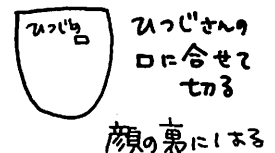 ひつじの口
ひつじさんの
口に合せて
切る
顔の裏にはる